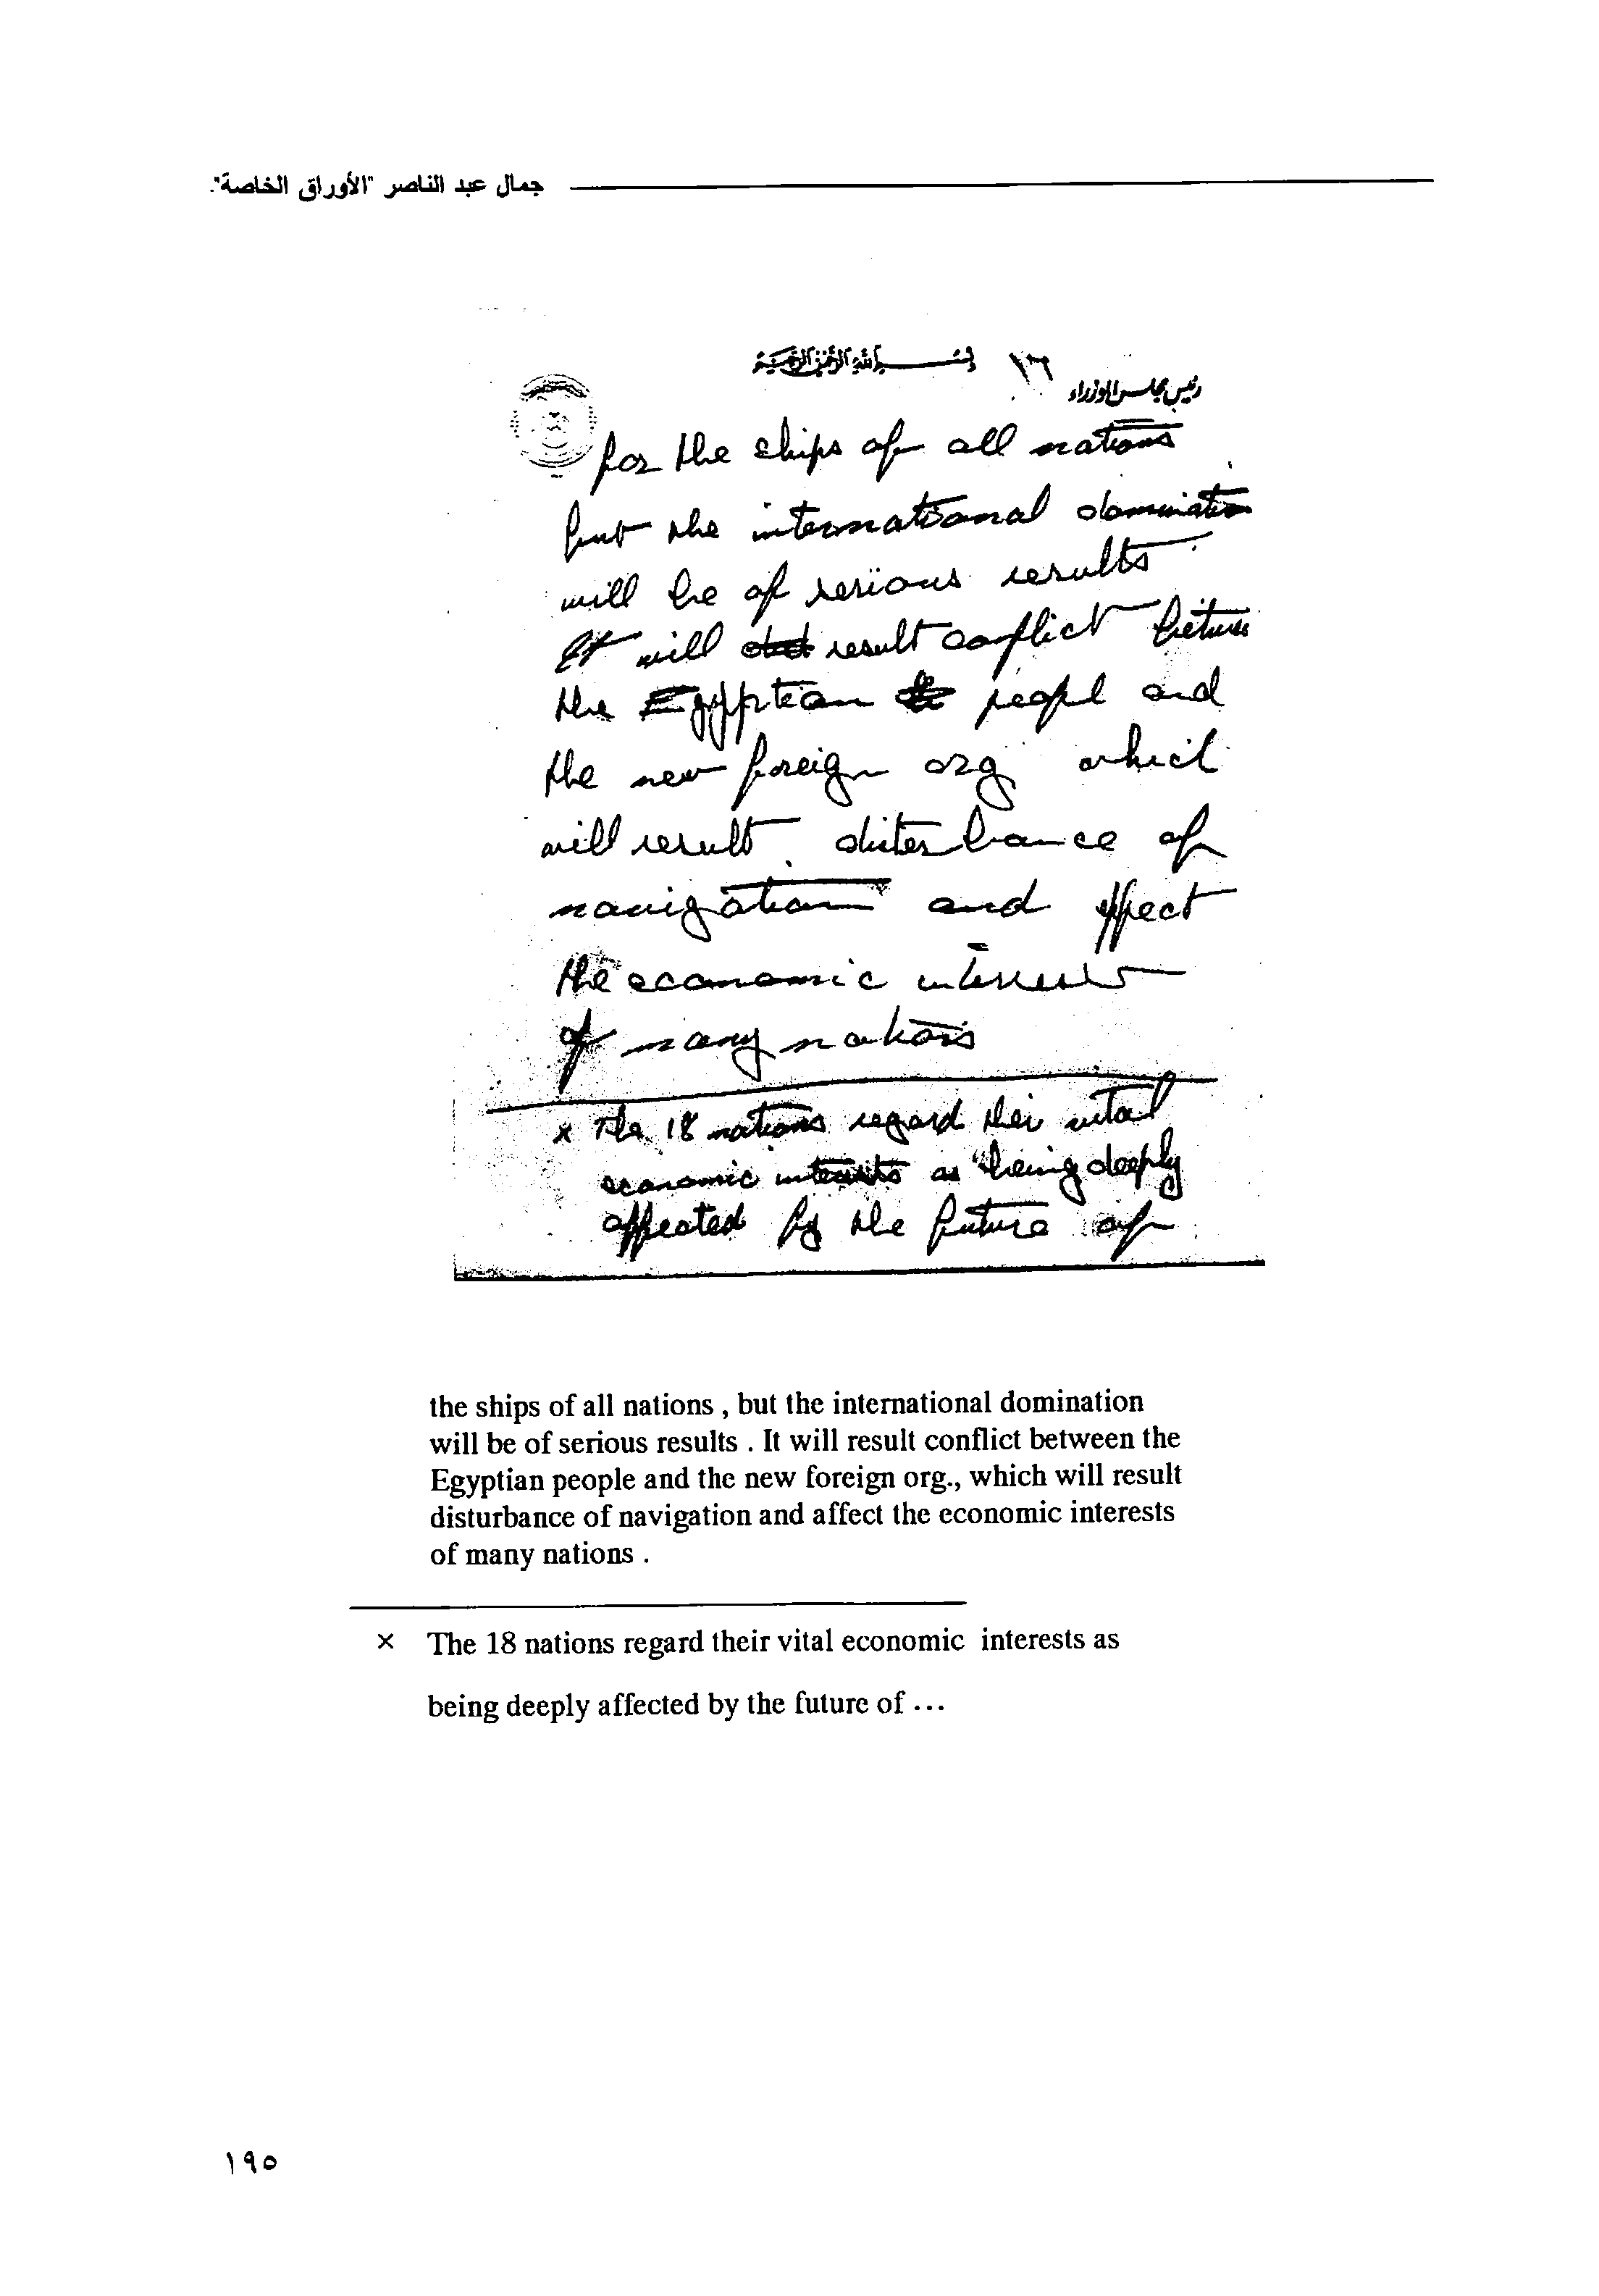 جمال عبد الناصر "الأوراق الخاصة".
بسم الله الرحمن الرحيم
١٦
رئيس مجلس الوزراء
for the ships of all nations
but the international domination
will be of serious results
It will result conflict between
the Egyptian peopl and
the new foreign org which
will result disterbance of
navigation and effect
the economic interests
of many nations
x The 18 nations regard their vital
economic interests as "being deeply
affected by the future of
the ships of all nations , but the international domination
will be of serious results . It will result conflict between the
Egyptian people and the new foreign org., which will result
disturbance of navigation and affect the economic interests
of many nations .
× The 18 nations regard their vital economic interests as
being deeply affected by the future of ...
١٩٥